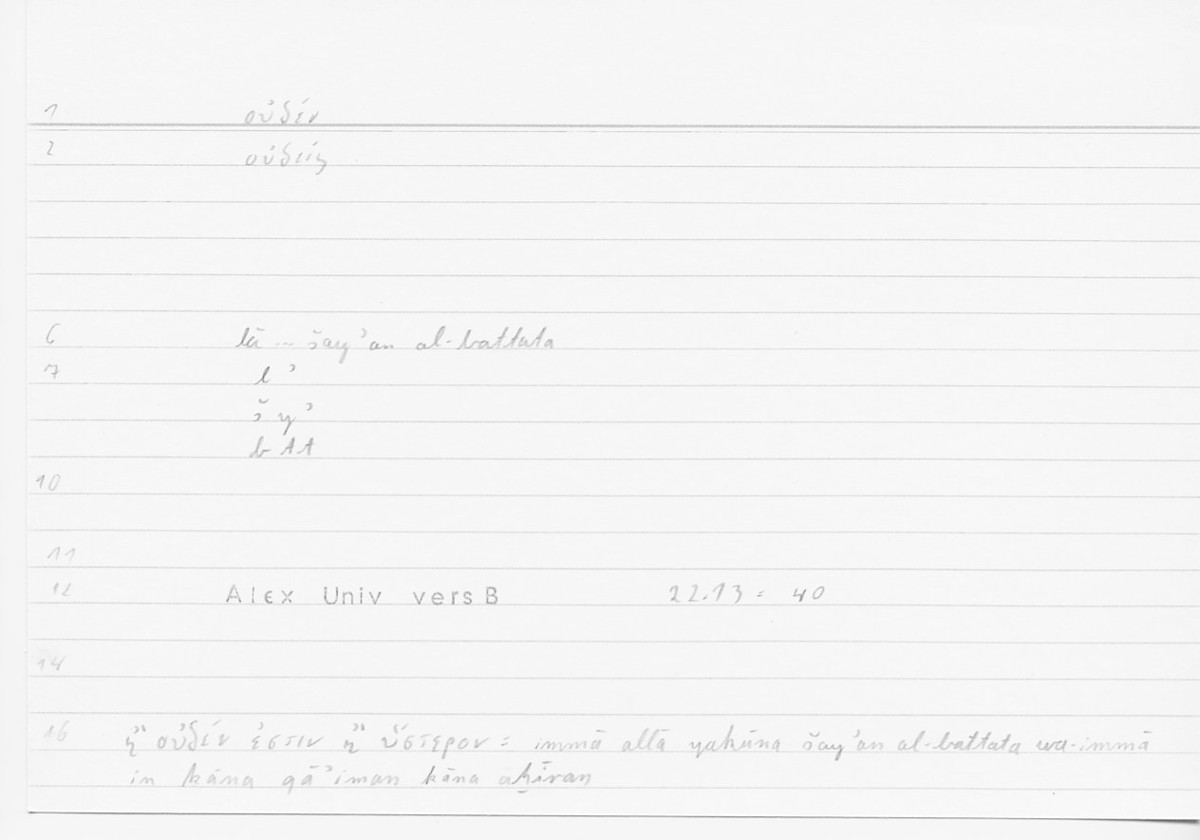 1 οὐδέν
2 οὐδείς
6 lā ... šayʾan al-battata
7 lʾ
šyʾ
btt
10
11
12 Alex Univ vers B 22.13 = 40
14
16 ἢ οὐδέν ἐστιν ἢ ὕστερον = immā allā yakūna šayʾan al-battata wa-immā
in kāna qāʾiman kāna aḫīran